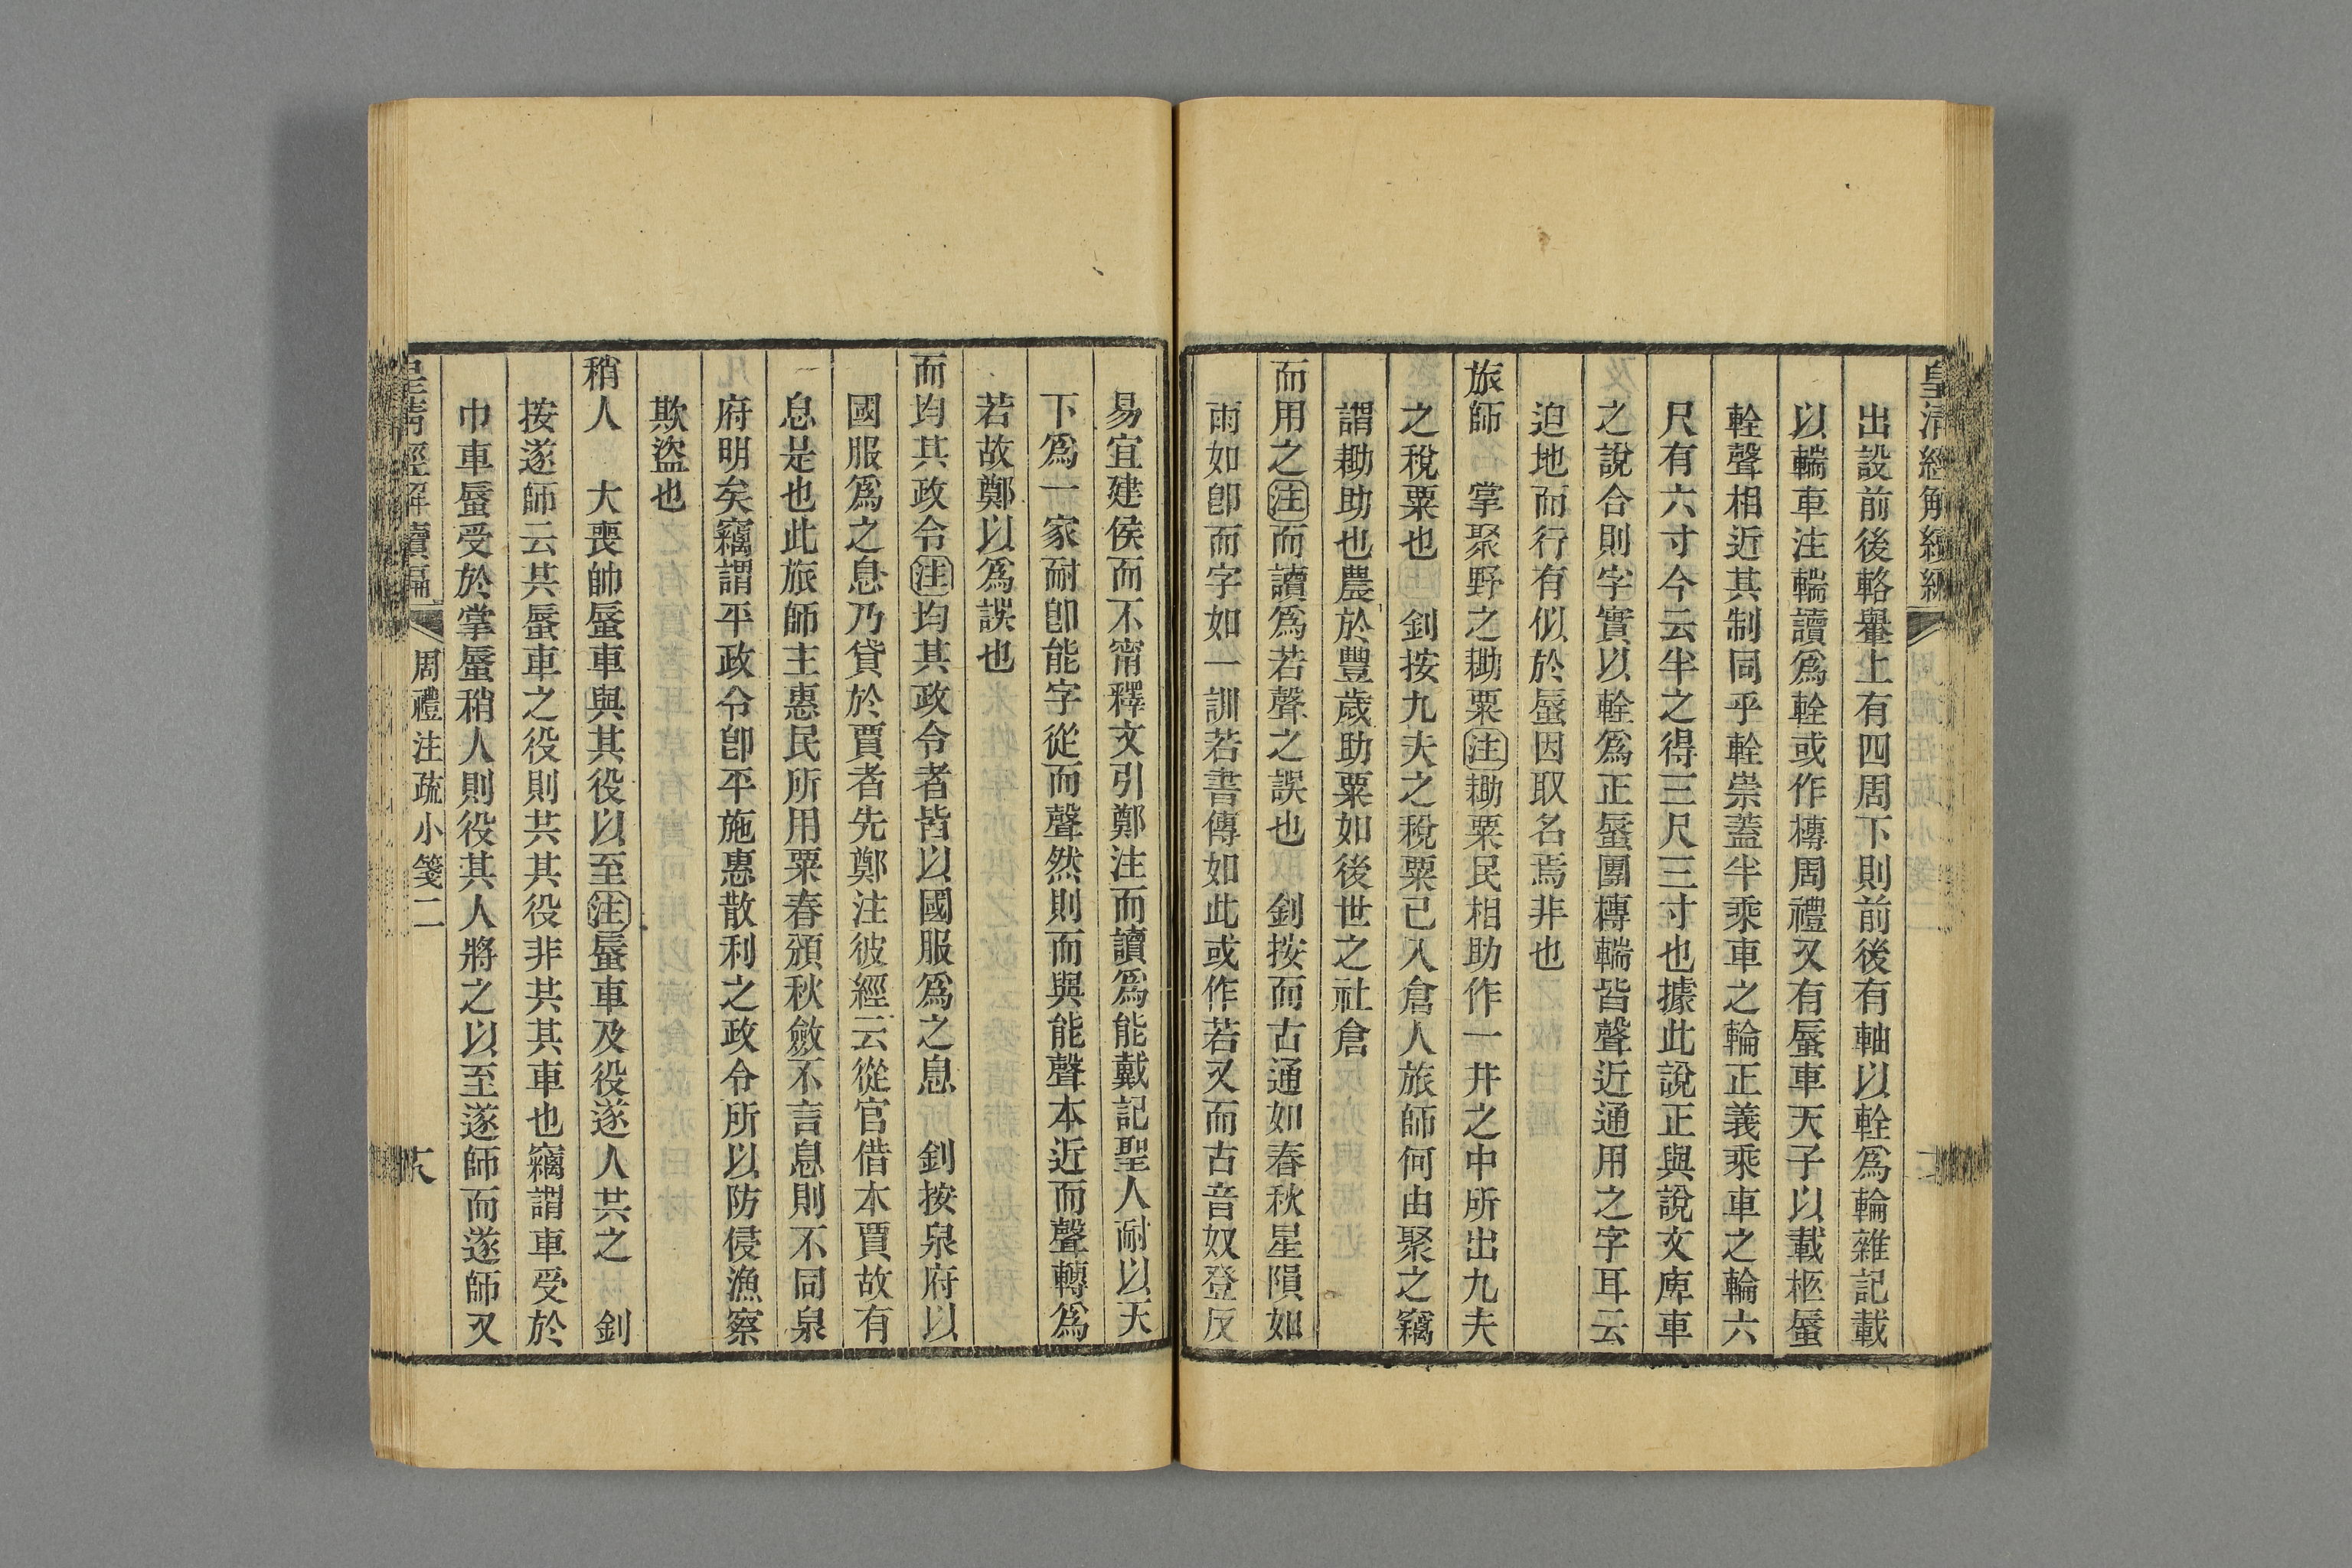 皇清經解續編
出設前後輅轝上有四周下則前後有軸以輇爲輪雜記載
以輲車注輲讀爲輇或作槫周禮又有蜃車天子以載柩蜃
輇聲相近其制同乎輇崇蓋半乘車之輪正義乘車之輪六
尺有六寸今云半之得三尺三寸也據此說正與說文庳車
之說合則字實以輇爲正蜃團槫輲皆聲近通用之字耳云
迫地而行有似於蜃因取名焉非也
旅師　掌聚野之耡粟注耡粟民相助作一井之中所出九夫
之稅粟也　釗按九夫之稅粟已入倉人旅師何由聚之竊
謂耡助也農於豐歲助粟如後世之社倉
而用之注而讀爲若聲之誤也　釗按而古通如春秋星隕如
雨如卽而字如一訓若書傳如此或作若又而古音奴登反
易宜建侯而不甯釋文引鄭注而讀爲能戴記聖人耐以天
下爲一家耐卽能字從而聲然則而與能聲本近而聲轉爲
若故鄭以爲誤也
而均其政令注均其政令者皆以國服爲之息　釗按泉府以
國服爲之息乃貸於賈者先鄭注彼經云從官借本賈故有
息是也此旅師主惠民所用粟春頒秋斂不言息則不同泉
府明矣竊謂平政令卽平施惠散利之政令所以防侵漁察
欺盜也
稍人　大喪帥蜃車與其役以至注蜃車及役遂人共之　釗
按遂師云共蜃車之役則共其役非共其車也竊謂車受於
巾車蜃受於掌蜃稍人則役其人將之以至遂師而遂師又
皇清經解續編　周禮注疏小箋二